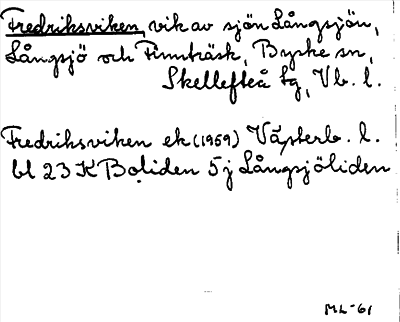 Fredriksviken, vik av sjön Långsjön,
Långsjö och Finnträsk, Byske sn,
Skellefteå tg, Vb. l.
Fredriksviken ek (1959) Västerb. l.
bl 23 K Boliden 5j Långsjöliden
ML-61